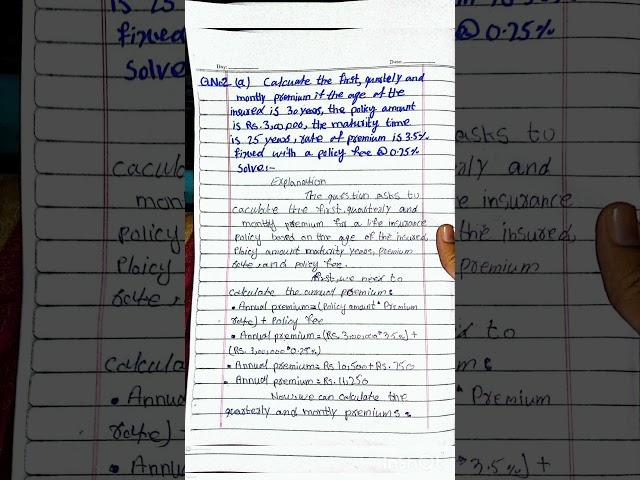 Day:
Date:
Q.No2 (a) Calcuate the first, quartely and
montly premium if the age of the
insured is 30 years, the policy amount
is Rs. 3,00,000, the maturity time
is 25 years, rate of premium is 3.5%
fixed with a policy fee @ 0.25%
Solve:-
Explanation
The question asks to
caculate the first, quarterly and
montly premium for a life insurance
policy based on the age of the insured,
Ploicy amount maturity years, premium
rate, and policy fee.
first, we need to
calculate the annual premium:
• Annual premium = (Policy amount * Premium
rate) + Policy fee
• Annual premium = (Rs. 3,00,000 * 3.5%) +
(Rs. 3,00,000 * 0.25%)
• Annual premium = Rs 10,500 + Rs. 750
• Annual premium = Rs. 11,250
Now, we can calculate the
quarterly and montly premiums: